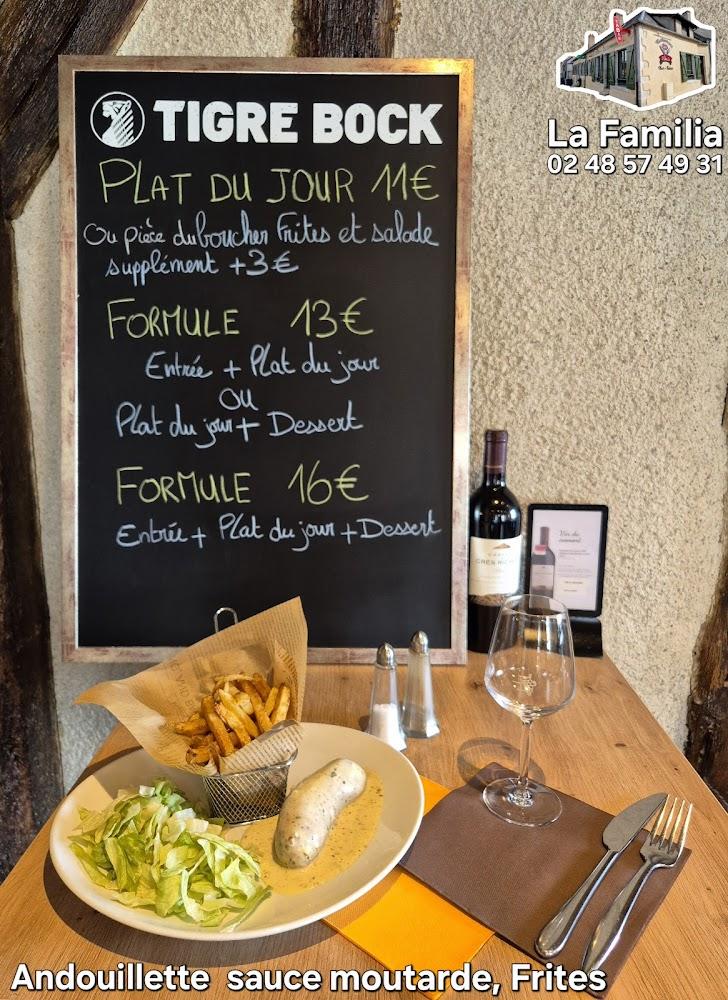 La Familia
02 48 57 49 31
TIGRE BOCK
PLAT DU JOUR 11€
Ou pièce du boucher Frites et salade
supplément +3€
FORMULE 13€
Entrée + Plat du jour
OU
Plat du jour + Dessert
FORMULE 16€
Entrée + Plat du jour + Dessert
CRÈS RICARDS
Vin du
moment
Andouillette sauce moutarde, Frites